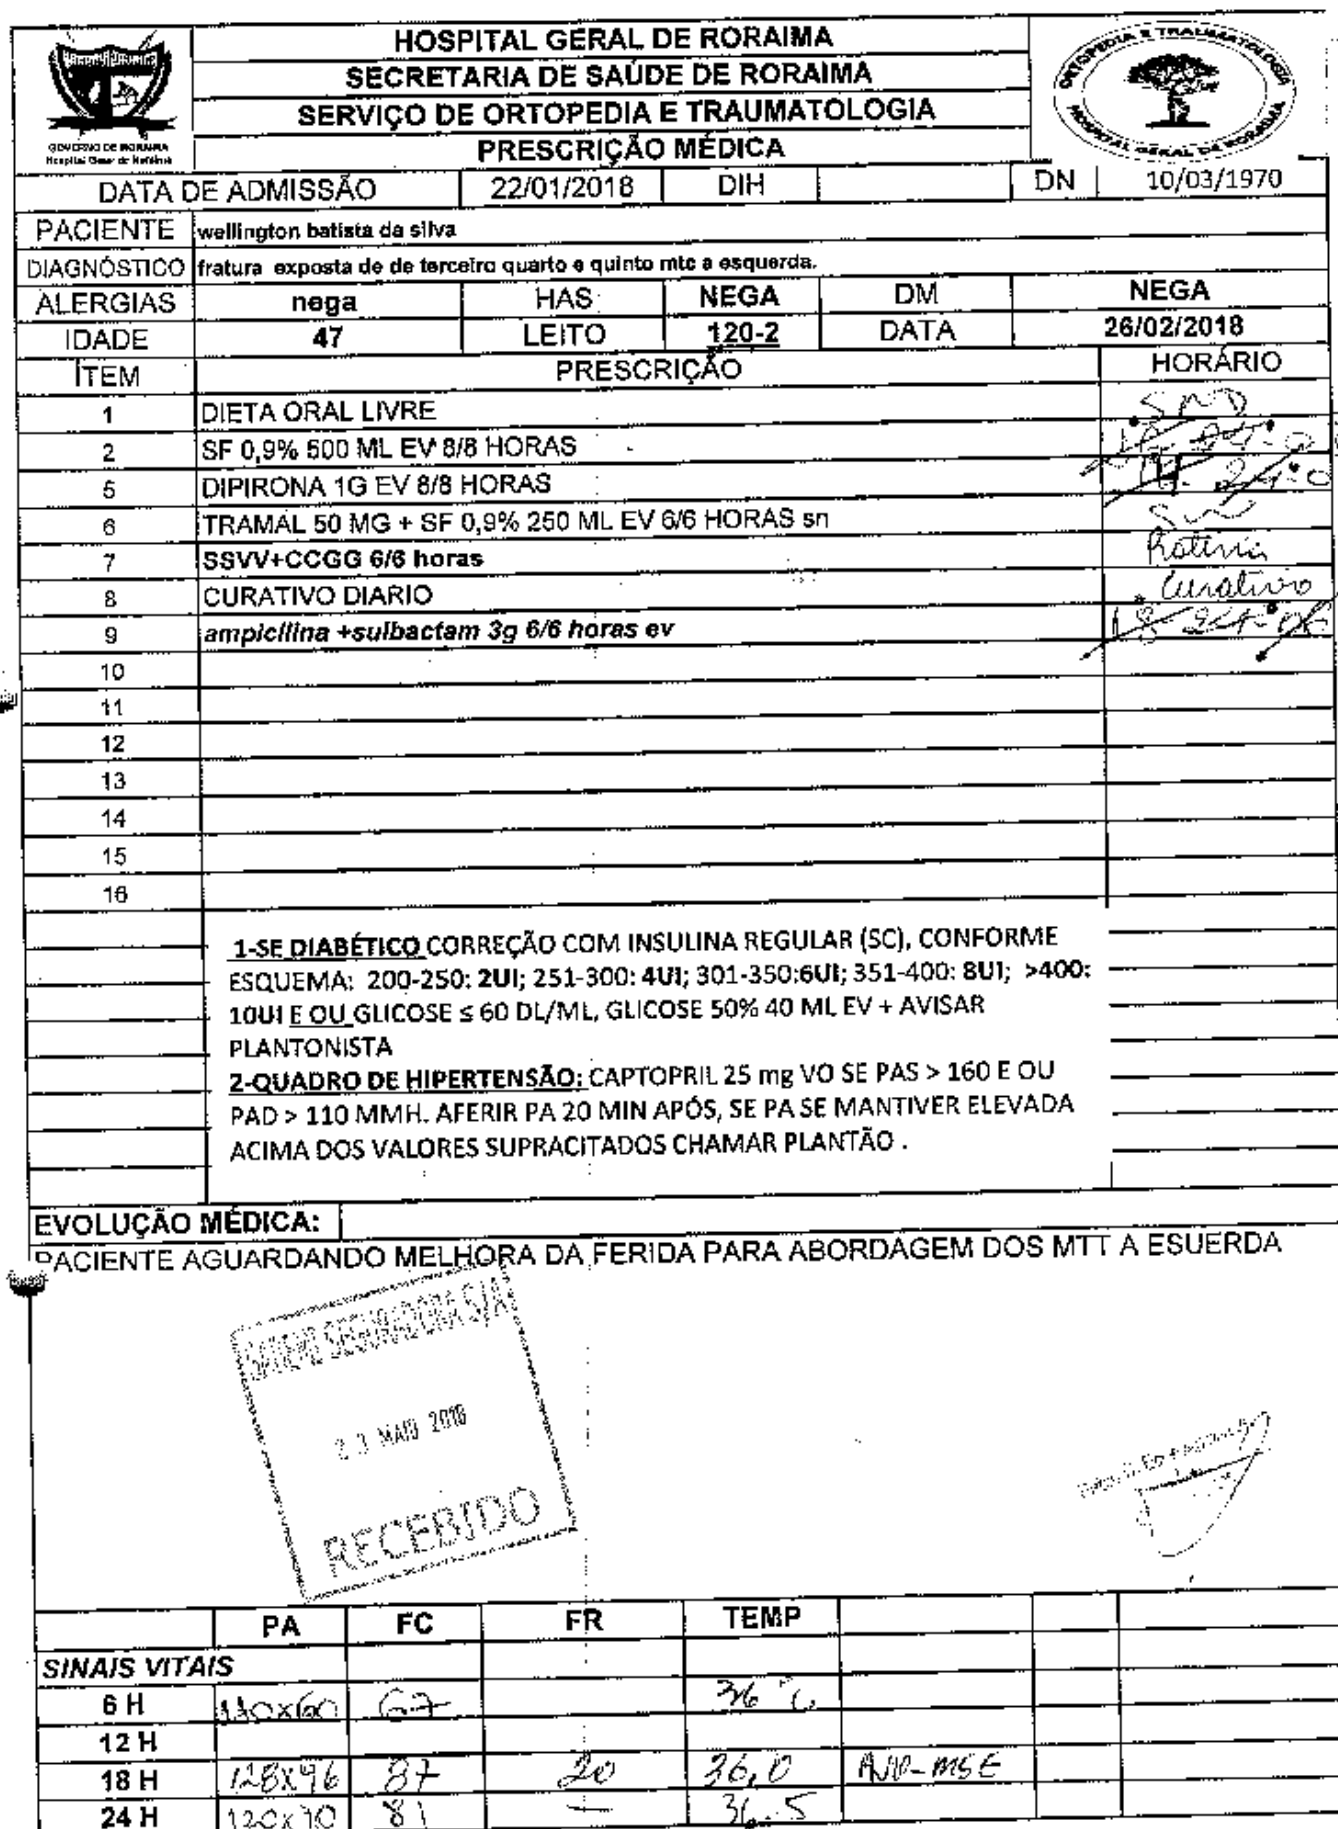 HOSPITAL GERAL DE RORAIMA
SECRETARIA DE SAÚDE DE RORAIMA
SERVIÇO DE ORTOPEDIA E TRAUMATOLOGIA
PRESCRIÇÃO MÉDICA
GOVERNO DE RORAIMA
ORTOPEDIA E TRAUMATOLOGIA
HOSPITAL GERAL DE RORAIMA
DATA DE ADMISSÃO 22/01/2018 DIH DN 10/03/1970
PACIENTE wellington batista da silva
DIAGNÓSTICO fratura exposta de de terceiro quarto e quinto mtc a esquerda.
ALERGIAS nega HAS: NEGA DM NEGA
IDADE 47 LEITO 120-2 DATA 26/02/2018
ÍTEM PRESCRIÇÃO HORÁRIO
1 DIETA ORAL LIVRE SND
2 SF 0,9% 500 ML EV 8/8 HORAS
5 DIPIRONA 1G EV 8/8 HORAS
6 TRAMAL 50 MG + SF 0,9% 250 ML EV 6/6 HORAS sn
7 SSVV+CCGG 6/6 horas Rotina
8 CURATIVO DIARIO Curativo
9 ampicilina +sulbactam 3g 6/6 horas ev 18 24 06
10
11
12
13
14
15
16
1-SE DIABÉTICO CORREÇÃO COM INSULINA REGULAR (SC), CONFORME
ESQUEMA: 200-250: 2UI; 251-300: 4UI; 301-350:6UI; 351-400: 8UI; >400:
10UI E OU GLICOSE ≤ 60 DL/ML, GLICOSE 50% 40 ML EV + AVISAR
PLANTONISTA
2-QUADRO DE HIPERTENSÃO: CAPTOPRIL 25 mg VO SE PAS > 160 E OU
PAD > 110 MMH. AFERIR PA 20 MIN APÓS, SE PA SE MANTIVER ELEVADA
ACIMA DOS VALORES SUPRACITADOS CHAMAR PLANTÃO .
EVOLUÇÃO MÉDICA:
PACIENTE AGUARDANDO MELHORA DA FERIDA PARA ABORDAGEM DOS MTT A ESUERDA
SEGURADORA S/A
23 MAIO 2018
RECEBIDO
PA FC FR TEMP
SINAIS VITAIS
6 H 110x60 67 36 °C
12 H
18 H 128x96 87 20 36,0
24 H 120x70 81 — 36.5